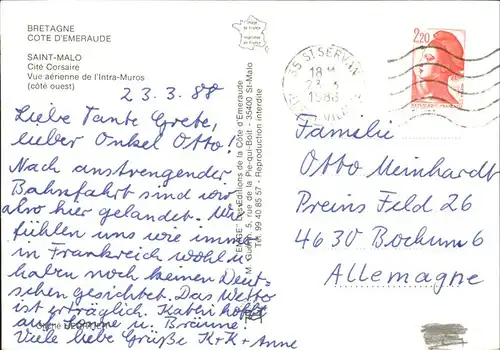 BRETAGNE
COTE D'EMERAUDE
SAINT-MALO
Cité Corsaire
Vue aérienne de l'Intra-Muros
(côté ouest)
23.3.88
Liebe Tante Grete,
lieber Onkel Otto!
Nach anstrengender
Bahnfahrt sind wir
also hier gelandet. Wir
fühlen uns wie immer
in Frankreich wohl u.
haben noch keinen Deut-
schen gesichtet. Das Wetter
ist erträglich. Kathi hofft
auf Sonne u. Bräune.
Viele liebe Grüße K+K+Anne
Les Editions de la Côte d'Emeraude
5, rue de la Pie-qui-Boit - 35400 St-Malo
Tél. 99 40 85 57 - Reproduction interdite
35 ST SERVAN
18 H
1988
2,20
Familie
Otto Meinhardt
Preins Feld 26
4630 Bochum 6
Allemagne